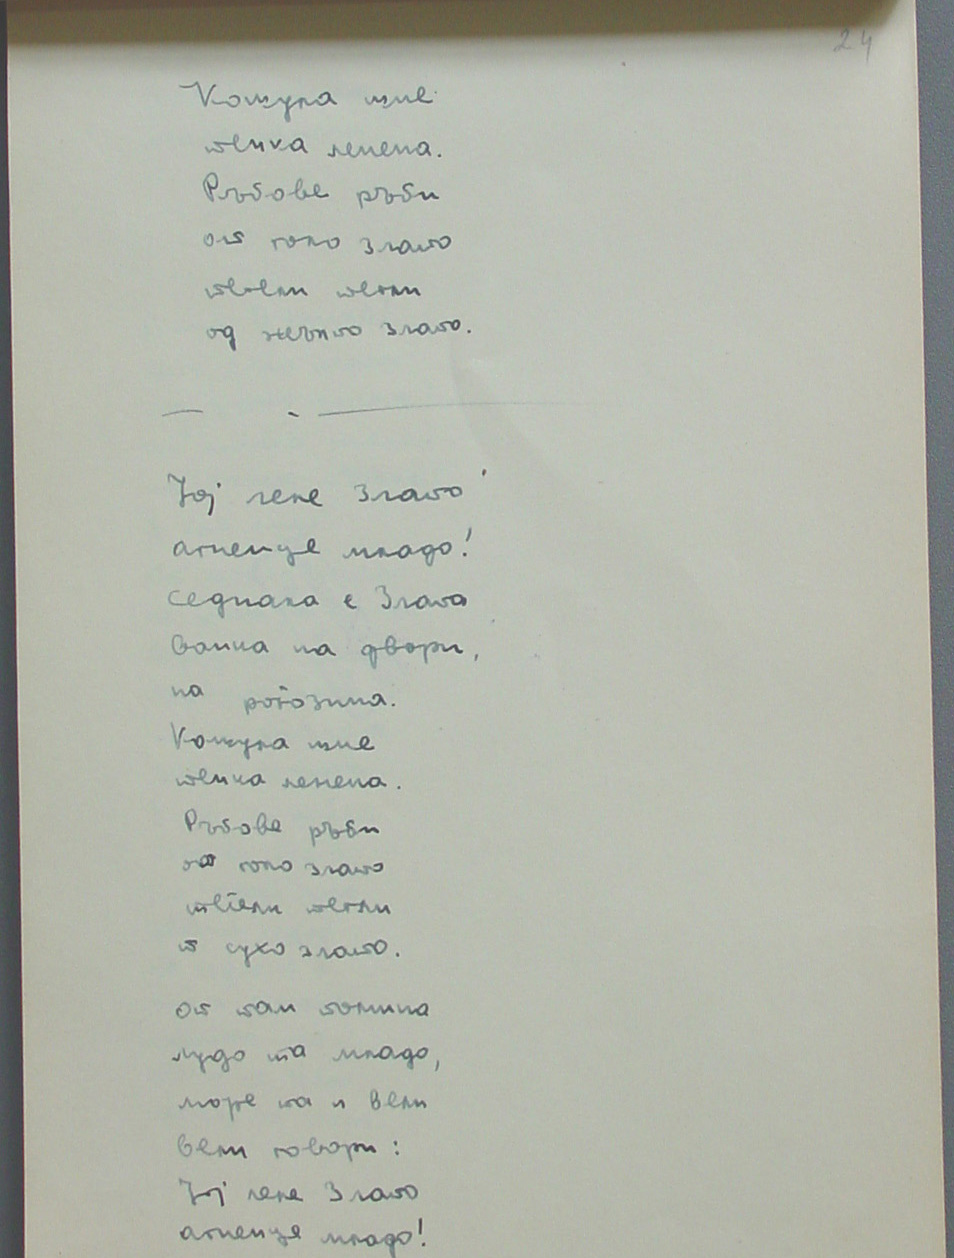 24
Кошуља шие
тенка ленена.
Ръбове ръби
от голо злато
тегели тегли
од жъпто злато.
Јој леле Злато
агненце младо!
Седнала е Злата
вонка на двори,
на рогозина.
Кошуља шие
тенка ленена.
Ръбове ръби
от голо злато
тегели тегли
т сухо злато.
От там помина
лудо та младо,
море та и вели
вели говори:
Јој леле Злато
агненце младо!